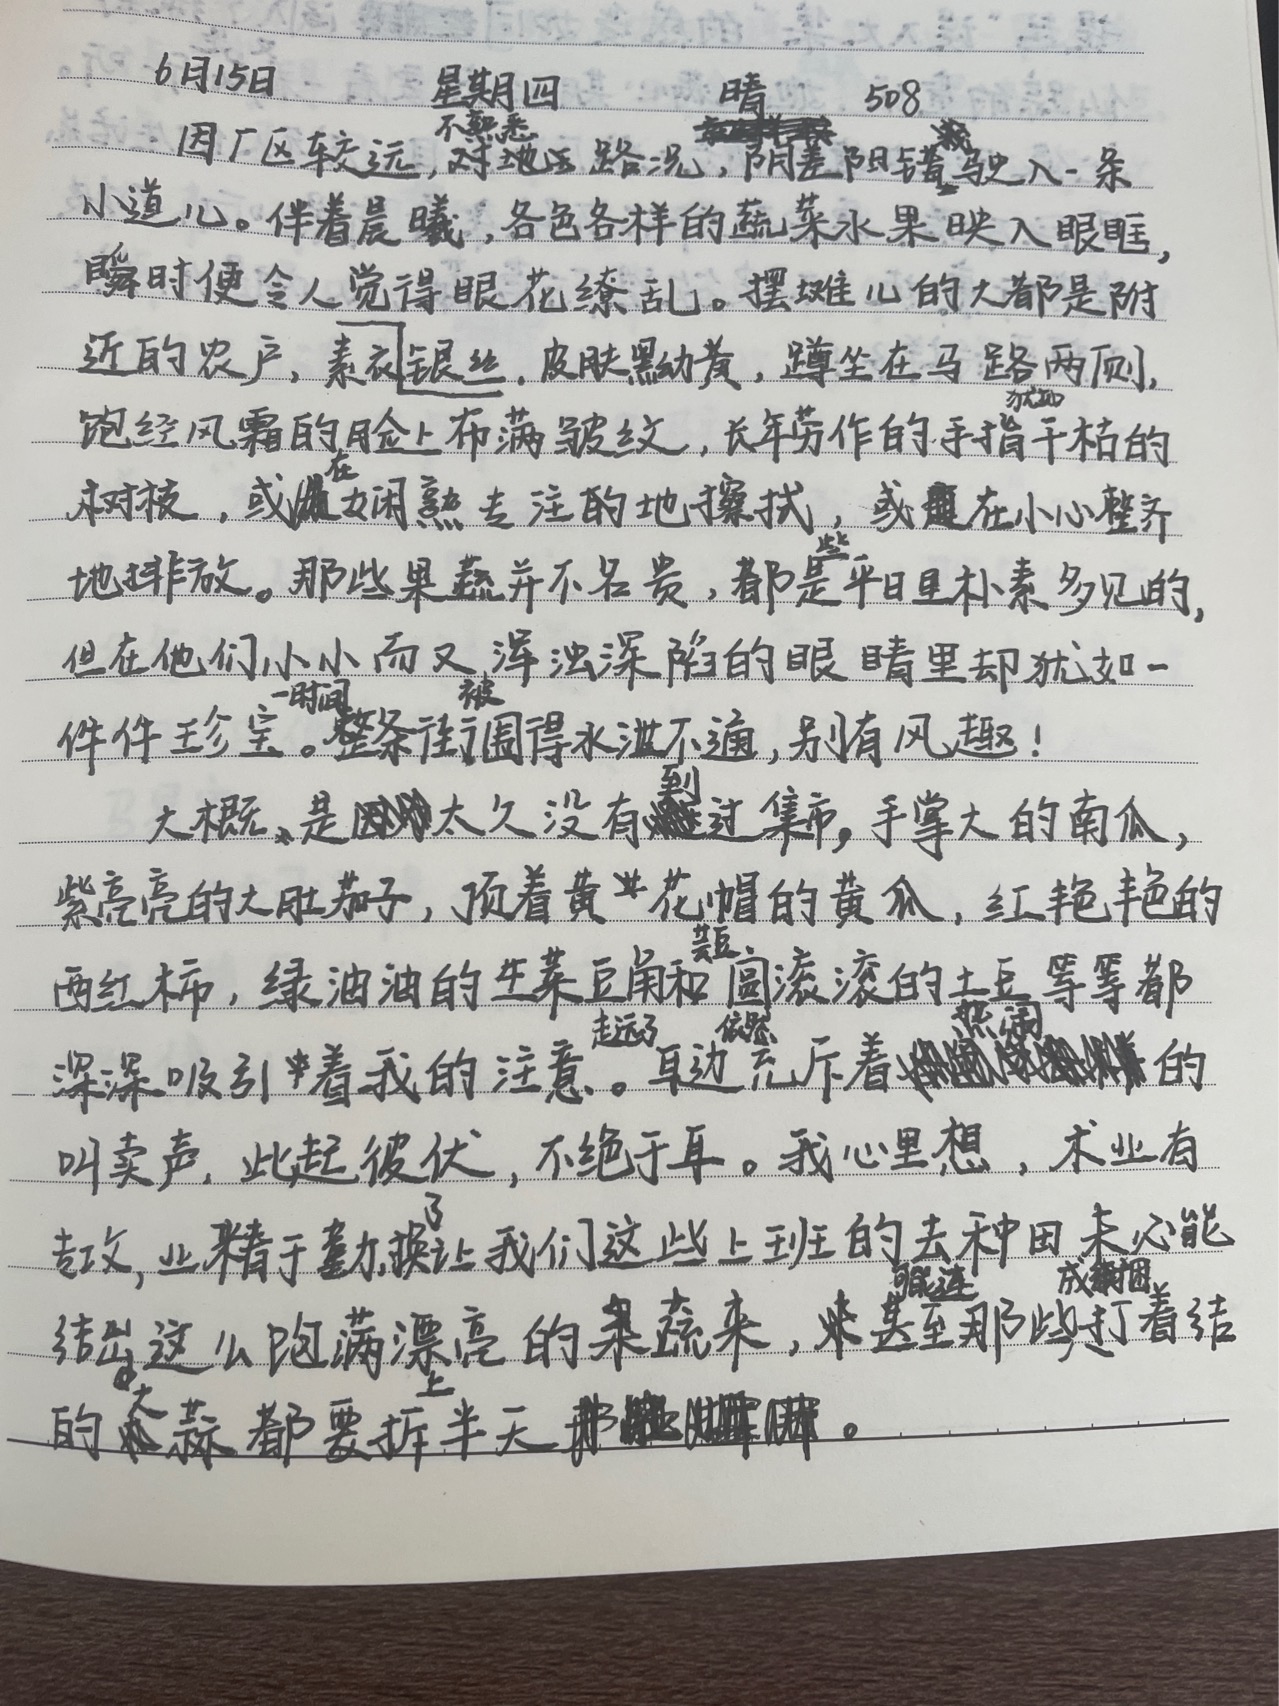 6月15日 星期四 晴 508
不熟悉
因厂区较远,对地区路况,阴差阳错驶入一条
小道儿。伴着晨曦,各色各样的蔬菜水果映入眼眶,
瞬时便令人觉得眼花缭乱。摆摊儿的大都是附
近的农户,素衣银丝,皮肤黑黝黄,蹲坐在马路两侧,
犹如
饱经风霜的脸上布满皱纹,长年劳作的手指干枯的
在
树枝,或娴熟专注的地擦拭,或在小心整齐
些
地排放。那些果蔬并不名贵,都是平日里朴素多见的,
但在他们小小而又浑浊深陷的眼睛里却犹如一
一时间 被
件件珍宝。整条街围得水泄不通,别有风趣!
到
大概、是太久没有过集市,手掌大的南瓜,
紫亮亮的大肚茄子,顶着黄花帽的黄瓜,红艳艳的
芸豆
西红柿,绿油油的生菜豆角和圆滚滚的土豆等等都
走远了 依然 热闹
深深吸引着我的注意。耳边充斥着的
叫卖声,此起彼伏,不绝于耳。我心里想,术业有
了
专攻,业精于勤,换让我们这些上班的去种田未必能
眼连 成捆
结出这么饱满漂亮的果蔬来,甚至那些打着结
大 上
的蒜都要拆半天。